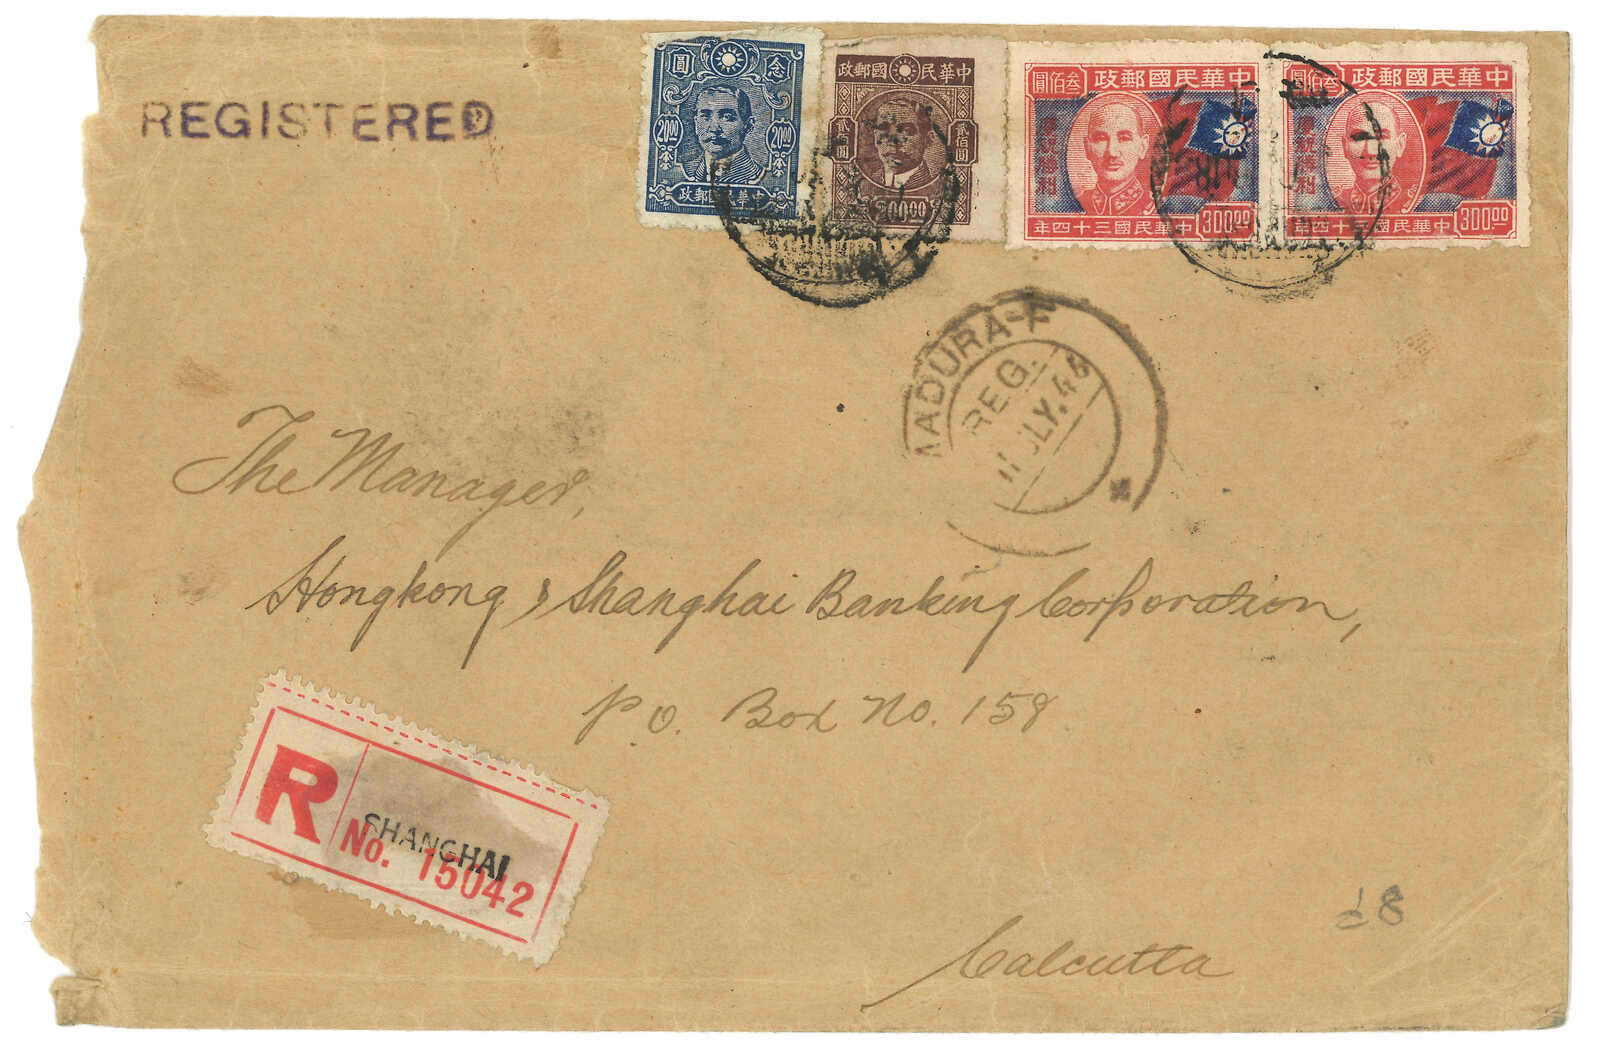 REGISTERED
圓 念
20.00 20.00
政郵國民華中
政郵國民華中
貳佰圓 貳佰圓
200.00
圓佰叁 政郵國民華中
慶祝勝利
年四十三國民華中 300.00
圓佰叁 政郵國民華中
慶祝勝利
年四十三國民華中 300.00
MADURA
REG.
11 JLY.46
The Manager,
Hongkong & Shanghai Banking Corporation,
P.O. Box No. 158
R
SHANGHAI
No. 15042
Calcutta